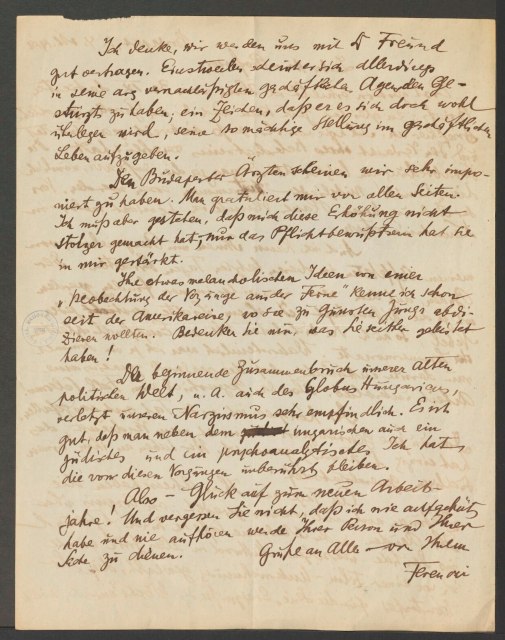 Ich denke, wir werden uns mit Dr Freund
gut vertragen. Einstweilen scheint er sich allerdings
in seine arg vernachläßigten geschäftlichen Agenden ge-
stürzt zu haben; ein Zeichen, daß er es sich doch wohl
überlegen wird, seine so mächtige Stellung im geschäftlichen
Leben aufzugeben.
Den Budapester Ärzten scheinen wir sehr impo-
niert zu haben. Man gratuliert mir von allen Seiten.
Ich muß aber gestehen, daß mich diese Erhöhung nicht
stolzer gemacht hat; nur das Pflichtbewußtsein hat sie
in mir gestärkt.
Ihre etwas melancholischen Ideen von einer
„Beobachtung der Vorgänge aus der Ferne" kenne ich schon
seit der Amerikareise, wo sie zu Gunsten Jungs abdi-
zieren wollten. Bedenken Sie nun, was Sie seither geleistet
haben!
Der beginnende Zusammenbruch unserer alten
politischen Welt, u. A. auch des Globus Hungaricus,
verletzt unseren Narzismus sehr empfindlich. Es ist
gut, daß man neben dem ungarischen auch ein
jüdisches und ein psychoanalytisches Ich hat,
die von diesen Vorgängen unberührt bleiben.
Also – Glück auf zum neuen Arbeits-
jahre! Und vergessen Sie nicht, daß ich nie aufgehört
habe und nie aufhören werde Ihrer Person und Ihrer
Sache zu dienen.
Grüße an Alle – von Ihrem
Ferenczi